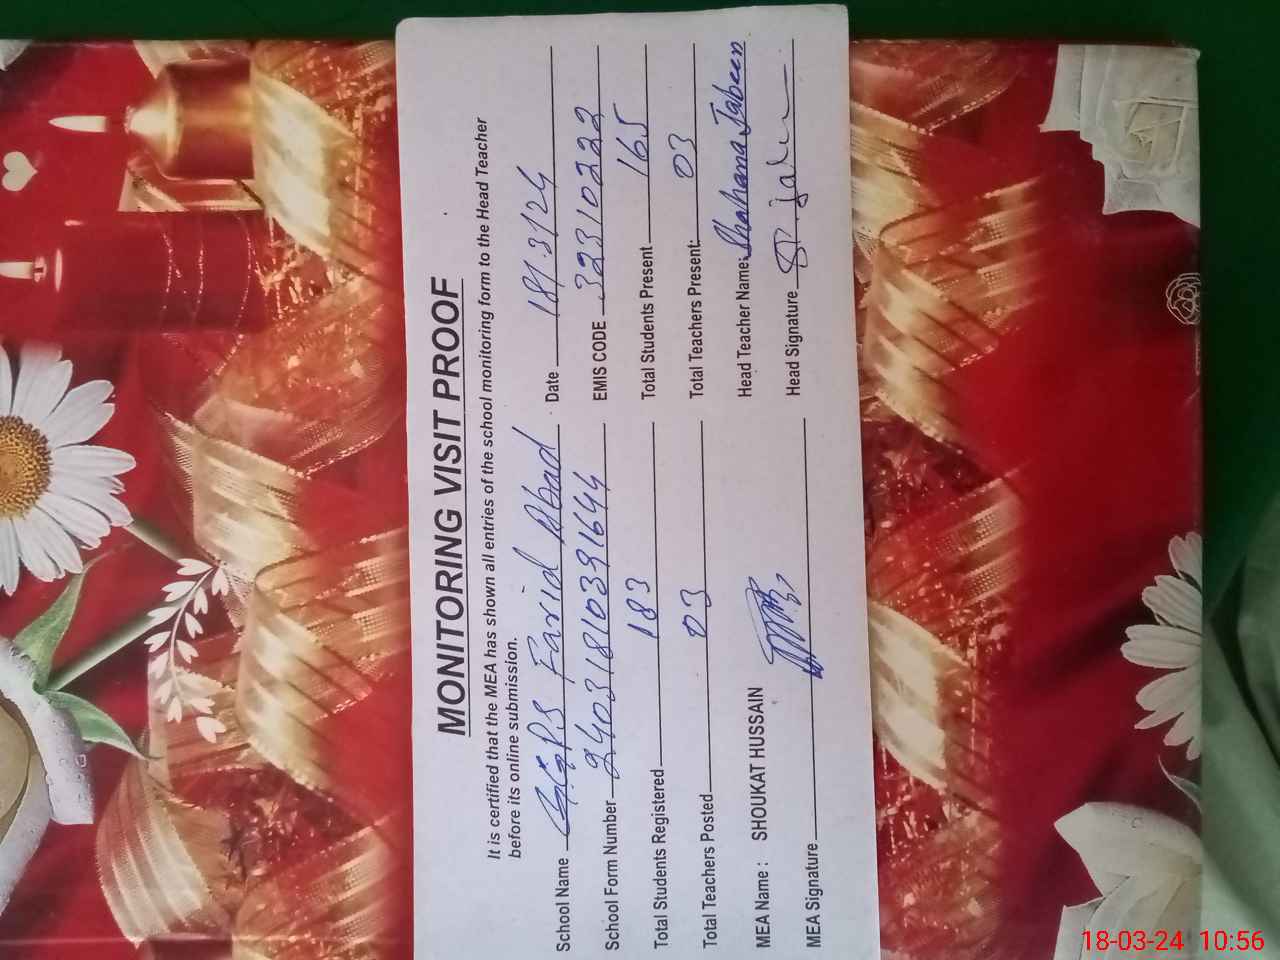 MONITORING VISIT PROOF
It is certified that the MEA has shown all entries of the school monitoring form to the Head Teacher
before its online submission.
School Name GGPS Farid Abad Date 18/3/24
School Form Number 24031810391644 EMIS CODE 32310222
Total Students Registered 183 Total Students Present 165
Total Teachers Posted 03 Total Teachers Present: 03
MEA Name : SHOUKAT HUSSAIN Head Teacher Name: Shahana Jabeen
MEA Signature Head Signature
18-03-24 10:56